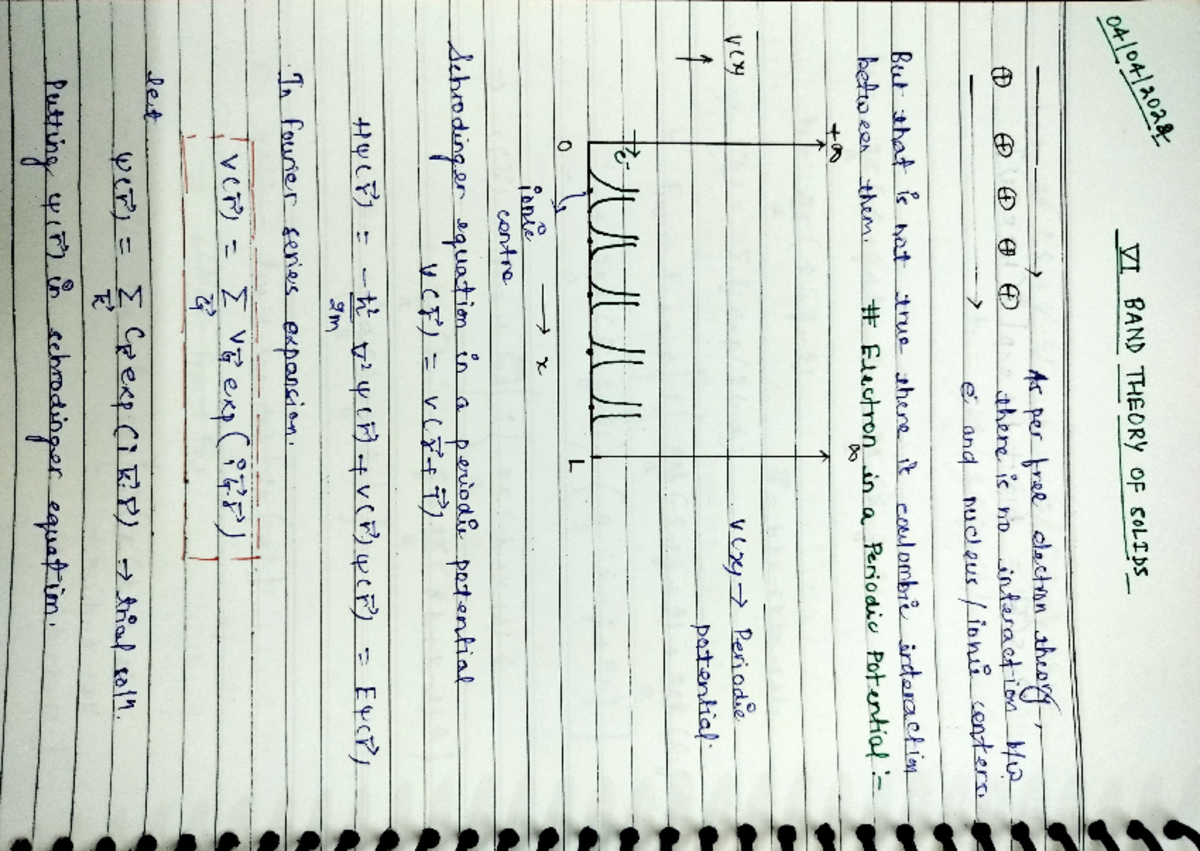 04/04/2024
VI BAND THEORY OF SOLIDS
As per free electron theory,
⊕ ⊕ ⊕ ⊕ ⊕ there is no interaction b/w
e⁻ and nucleus / ionic centers.
But that is not true there is coulombic interaction
between them. # Electron in a Periodic Potential :-
+∞ ∞
V(x)
V(x) → Periodic
potential.
e⁻
0 L
ionic
centre
→ x
Schrodinger equation in a periodic potential
V(r⃗) = V(r⃗ + T⃗)
Hψ(r⃗) = -ħ²/2m ∇²ψ(r⃗) + V(r⃗)ψ(r⃗) = Eψ(r⃗)
In Fourier series expansion.
V(r⃗) = Σ_G⃗ V_G⃗ exp(iG⃗.r⃗)
let
ψ(r⃗) = Σ_k⃗ C_k⃗ exp(i k⃗.r⃗) → trial solⁿ.
Putting ψ(r⃗) in schrodinger equation.